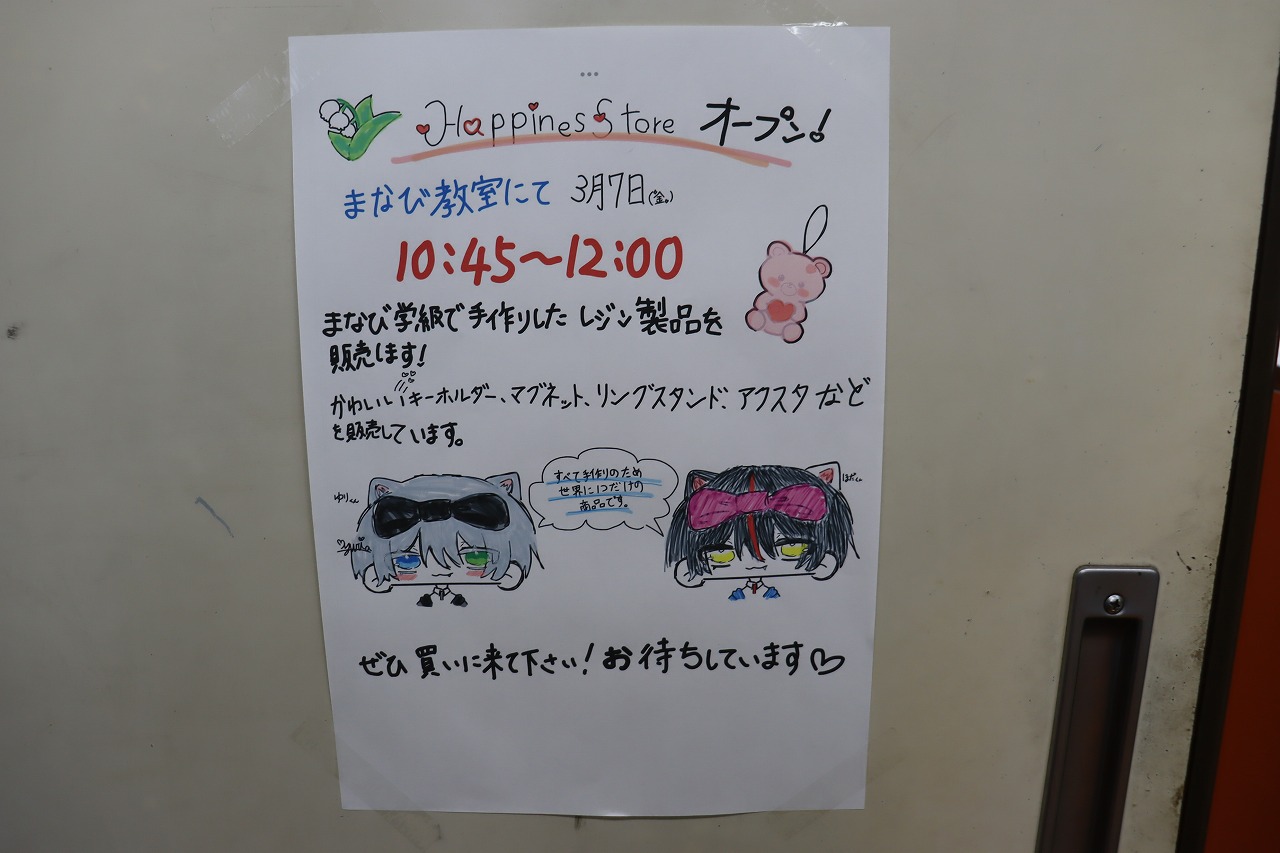 HappinesStore オープン!
まなび教室にて 3月7日(金)
10:45〜12:00
まなび学級で手作りした レジン製品を
販売します!
かわいいキーホルダー、マグネット、リングスタンド、アクスタなど
を販売しています。
すべて手作りのため
世界に1つだけの
商品です。
ぜひ買いに来て下さい!お待ちしています♡